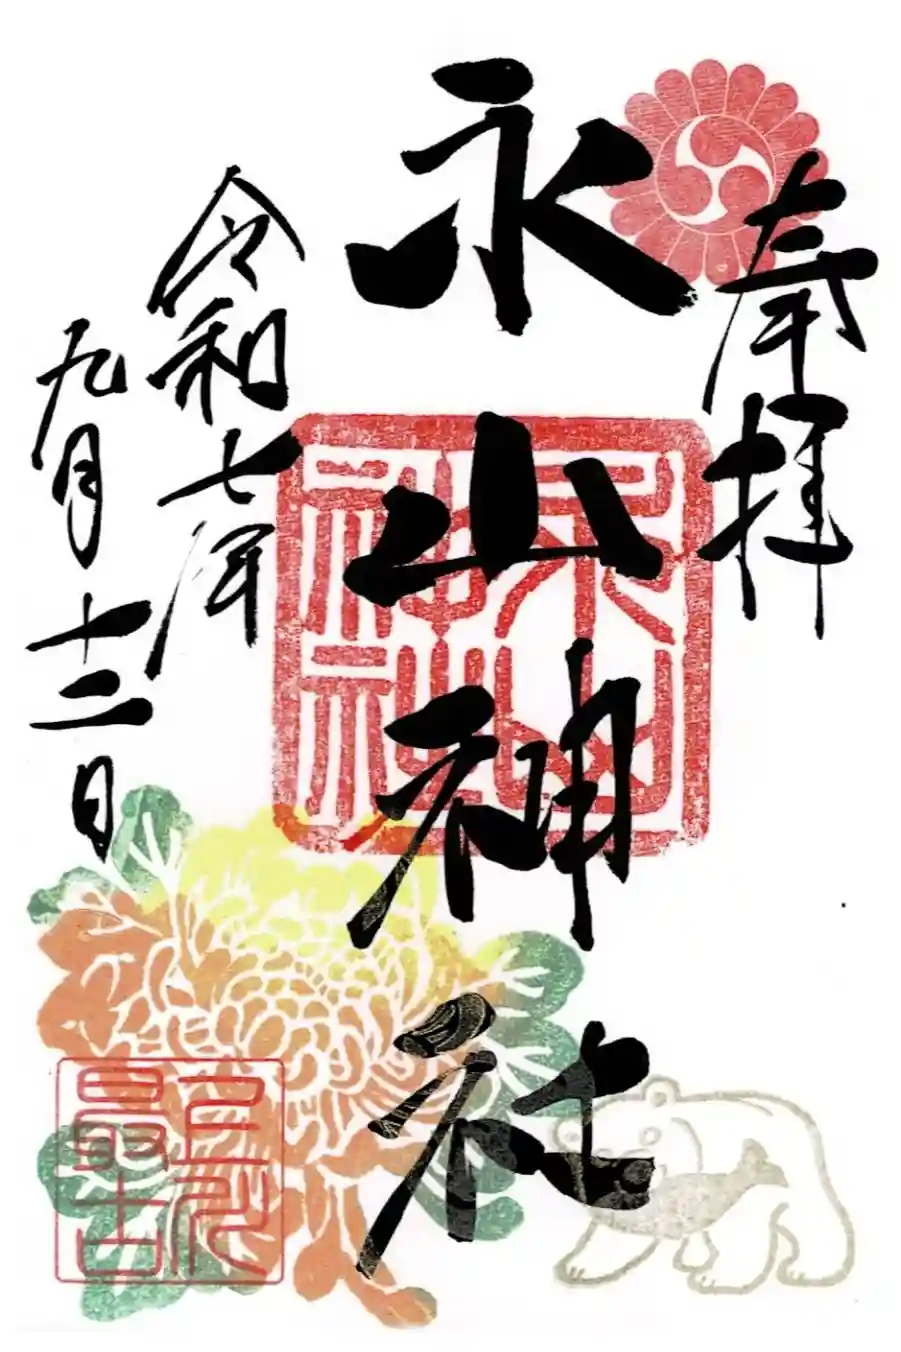 奉拝
永山神社
令和七年
九月十二日
永山神社